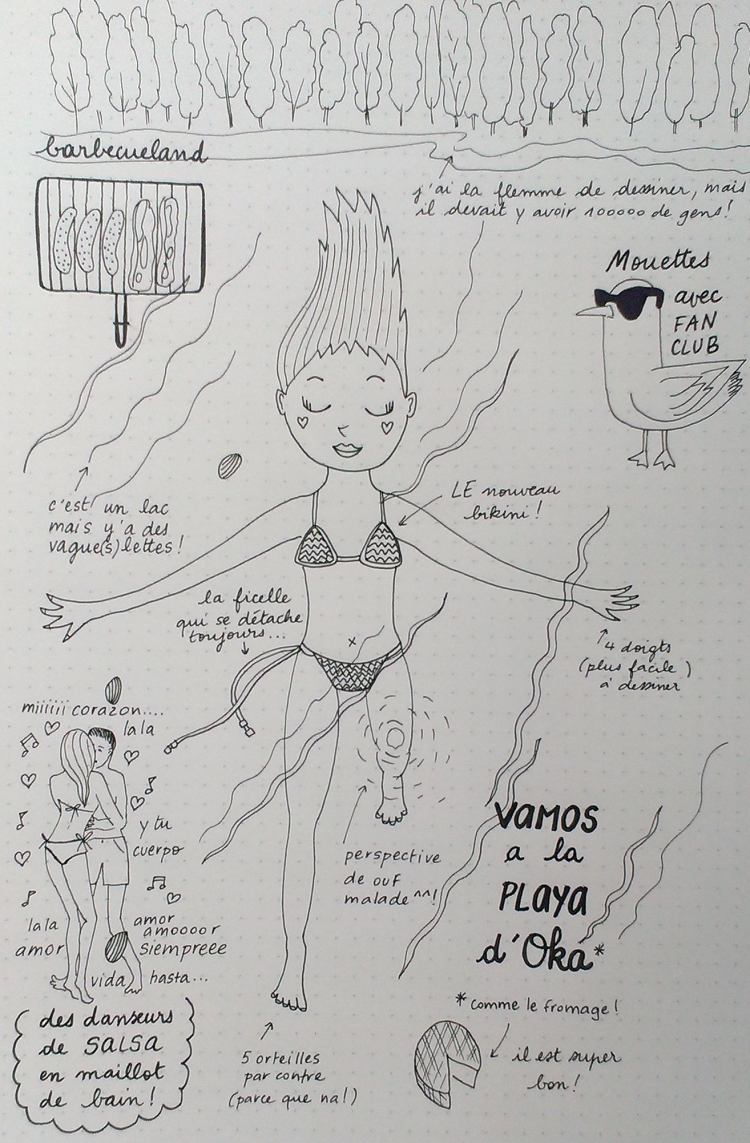 barbecueland
j'ai la flemme de dessiner, mais
il devait y avoir 100000 de gens!
Mouettes
avec
FAN
CLUB
c'est un lac
mais y'a des
vague(s)lettes!
LE nouveau
bikini!
la ficelle
qui se détache
toujours...
4 doigts
(plus facile)
à dessiner
miiiiii corazon....
lala
y tu
cuerpo
lala
amor
amor
amoooor
siempreee
vida hasta...
perspective
de ouf
malade ^^!
VAMOS
a la
PLAYA
d'Oka*
*comme le fromage!
il est super
bon!
des danseurs
de SALSA
en maillot
de bain!
5 orteilles
par contre
(parce que na!)